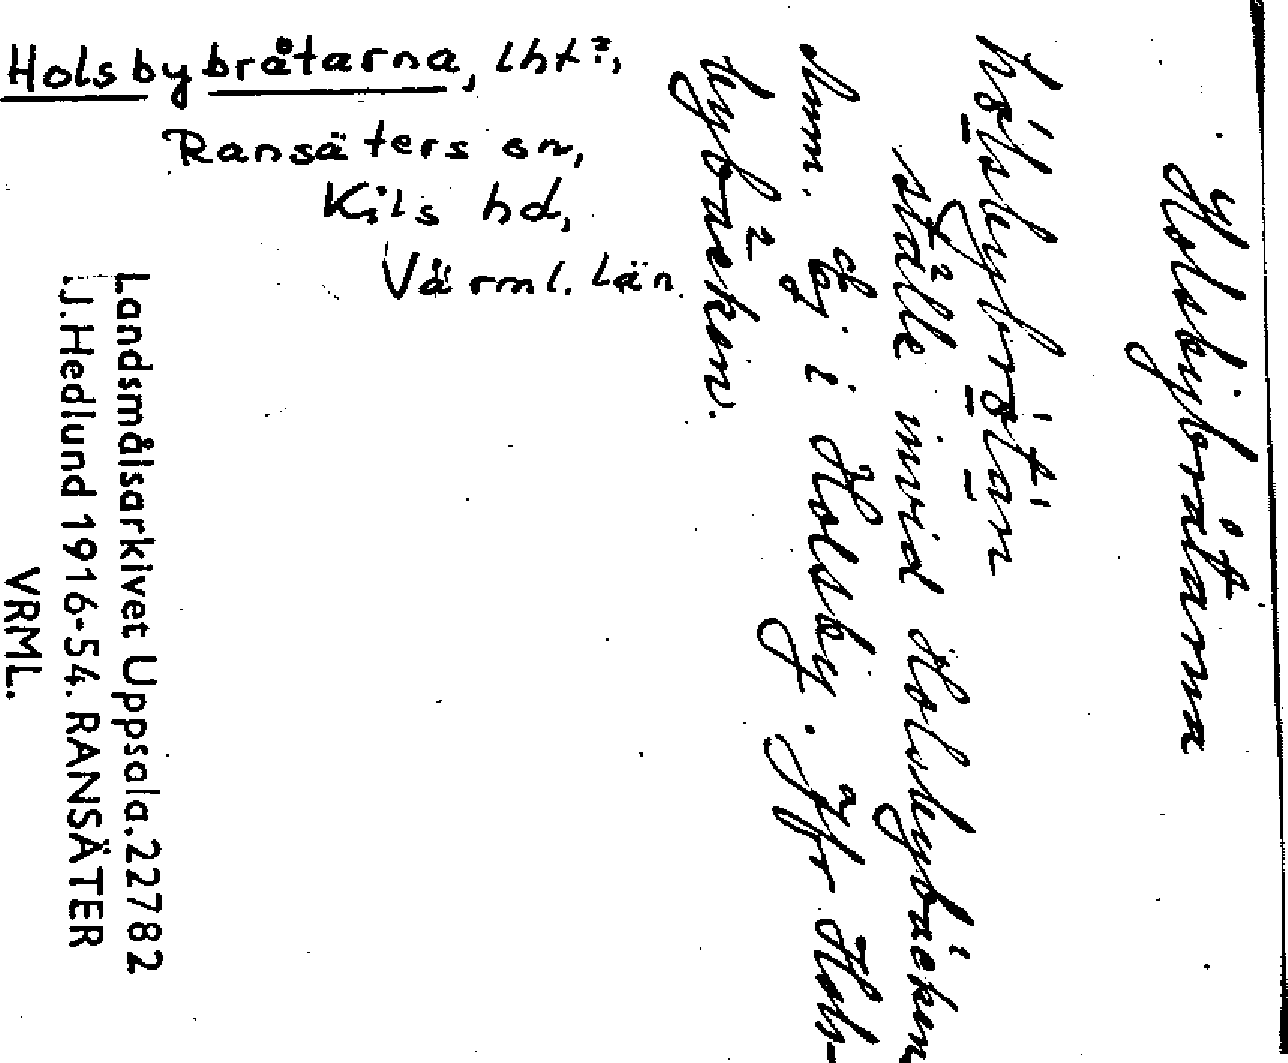 Holsbybråtarna, lht?,
Ransäters sn,
Kils hd,
Värml. län.
Holsbybråtarna
hólsbybrótan
ställe invid Holsbybäcken
Anm. Ej i Holsby. Jfr Hols-
bybäcken.
Landsmålsarkivet Uppsala. 22782
J. Hedlund 1916-54. RANSÄTER
VRML.